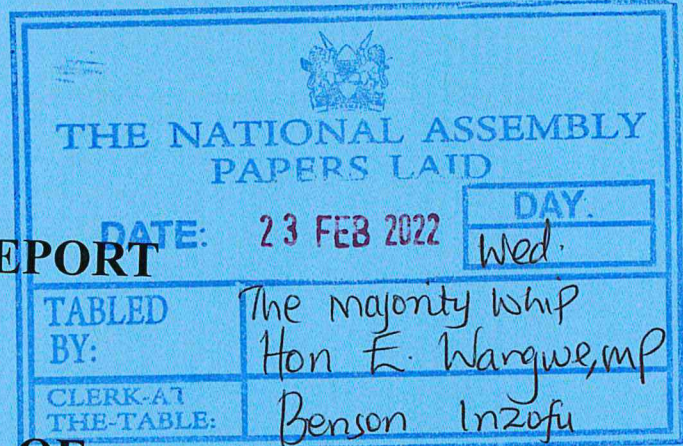 THE NATIONAL ASSEMBLY
PAPERS LAID
DATE: 23 FEB 2022 DAY.
Wed.
EPORT
TABLED BY: The Majority Whip
Hon E. Wangwe, MP
CLERK-AT THE-TABLE: Benson Inzofu
OF